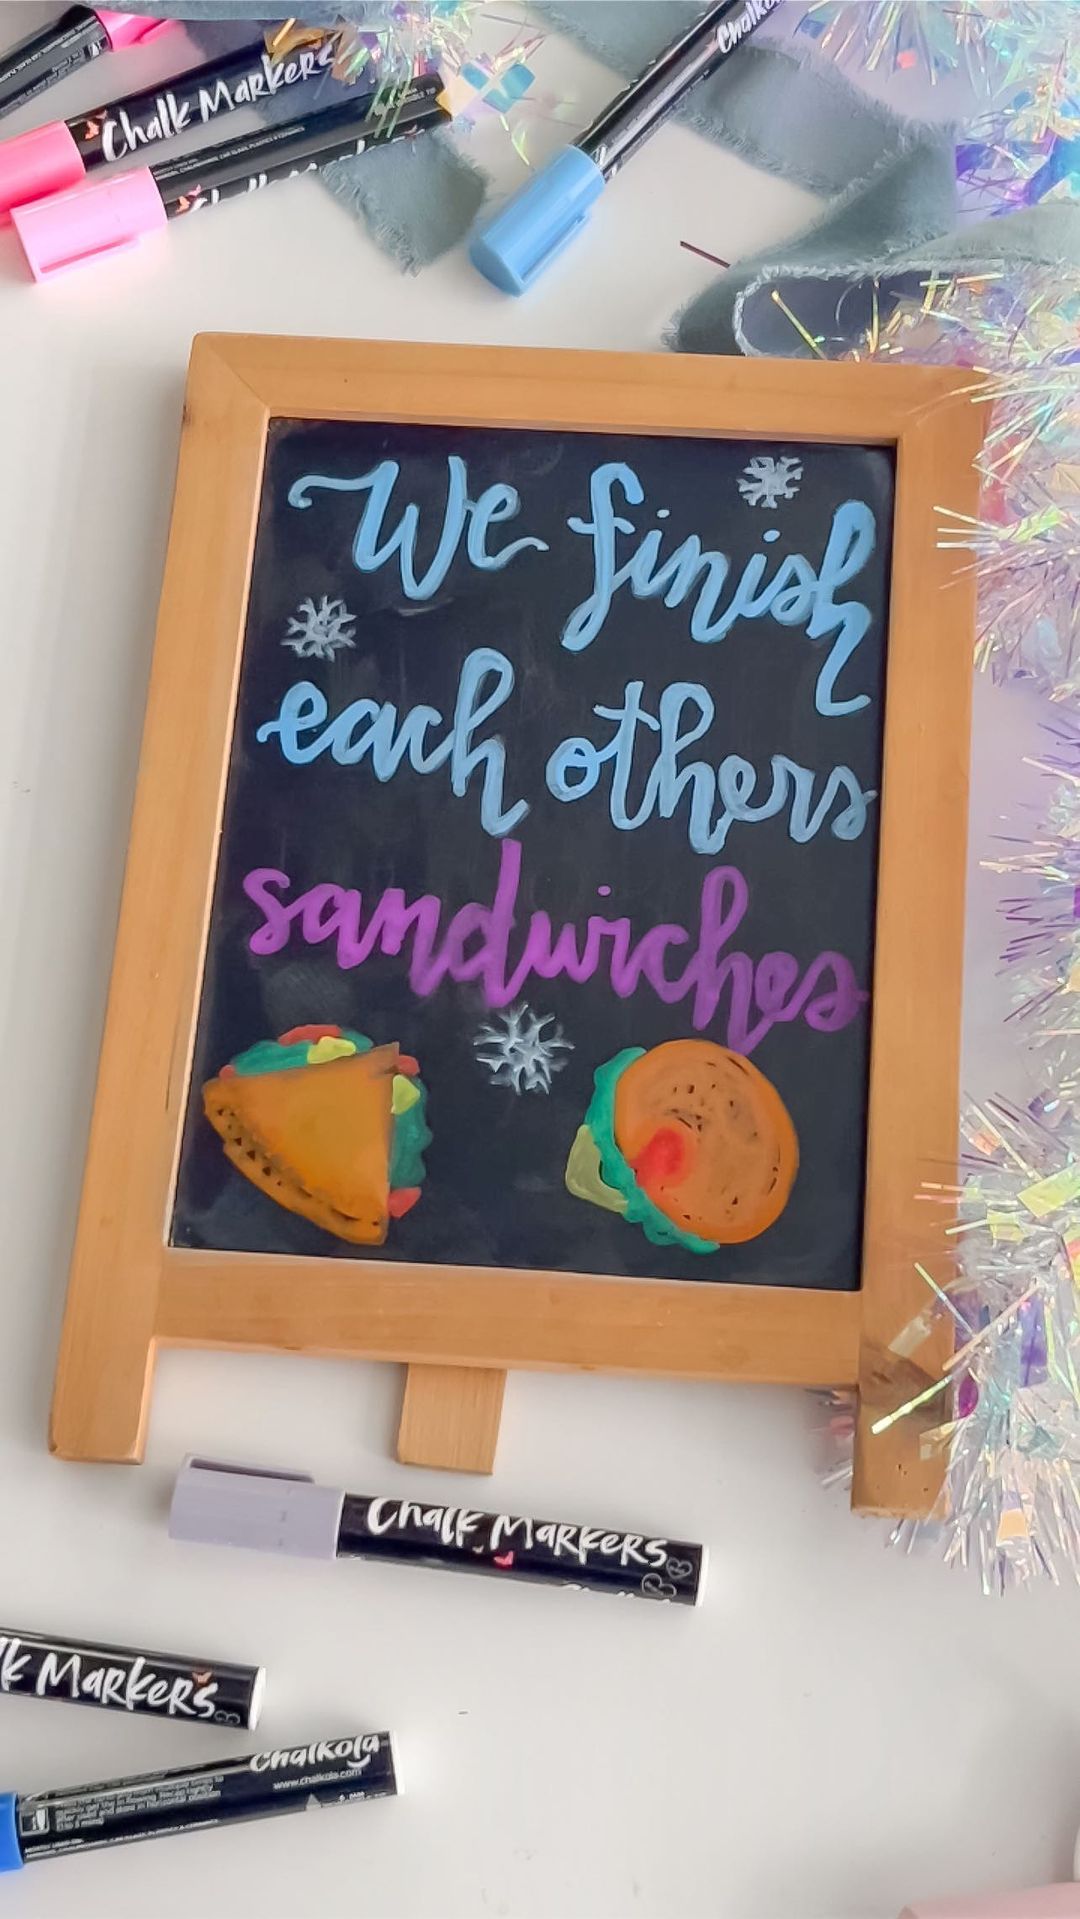 Chalk Markers
Chalk
We finish
each others
sandwiches
Chalk Markers
Markers
Chalkola
www.chalkola.com